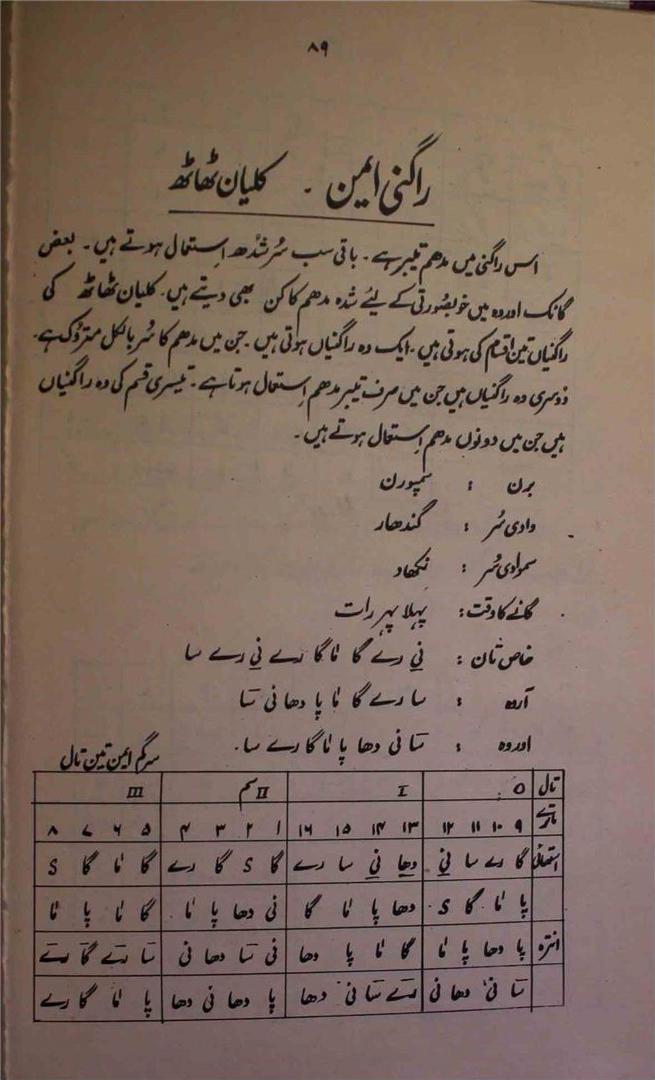 ۸۹
راگنی ایمن ۔ کلیان ٹھاٹھ
اس راگنی میں مدھم تیبر ہے ۔ باقی سب سُر شُدھ اِستمال ہوتے ہیں ۔ بعض
گائک اوروہ میں خوبصُورتی کے لیئے شدہ مدھم کا کن بھی دیتے ہیں ۔ کلیان ٹھاٹھ کی
راگنیاں تین اقسام کی ہوتی ہیں ۔ ایک وہ راگنیاں ہوتی ہیں ۔ جن میں مدھم کا سُر بالکل متروک ہے ۔
دُوسری وہ راگنیاں ہیں جن میں صرف تیبر مدھم اِستمال ہوتا ہے ۔ تیسری قسم کی وہ راگنیاں
ہیں جن میں دونوں مدھم اِستمال ہوتے ہیں ۔
برن : سمپورن
وادی سُر : گندھار
سموادی سُر : نکھاد
گانے کا وقت : پہلا پہر رات
خاص تان : نِی رے گا مٰا گا رے نِی رے سا
آروہ : سا رے گا مٰا پا دھا نی سٰا
اوروہ : سٰا نی دھا پا مٰا گا رے سا ۔
سرگم ایمن تین تال
تال O I II سم III
ماترے ۹ ۱۰ ۱۱ ۱۲ ۱۳ ۱۴ ۱۵ ۱۶ ۱ ۲ ۳ ۴ ۵ ۶ ۷ ۸
استھائی گا رے سا نِی دھِا نِی سا رے گا S گا رے گا مٰا گا S
پا مٰا گا S دھا پا مٰا گا نی دھا پا مٰا گا مٰا پا مٰا
انترہ پا دھا پا مٰا گا مٰا پا دھا نی سٰا دھا نی سٰا رٰے گٰا رٰے
سٰا نی دھا نی رٰے سٰا نی دھا پا دھا نی دھا پا مٰا گا رے